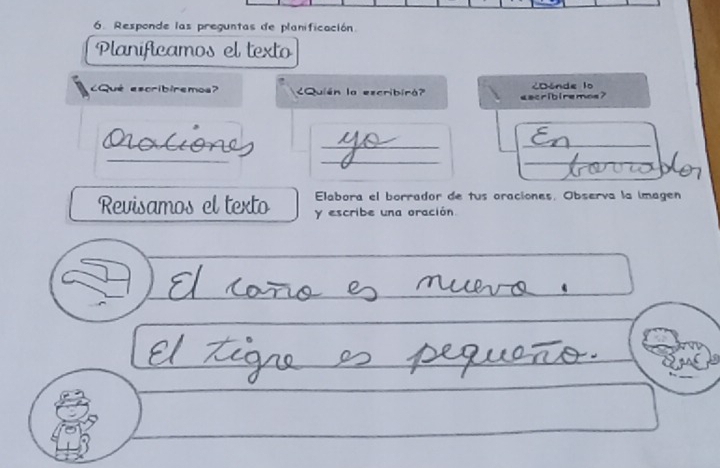 6. Responde las preguntas de planificación.
Planificamos el texto
¿Qué escribiremos?
¿Quién la escribirá?
¿Dónde lo
escribiremos?
Oraciones
yo
En
borrador
Revisamos el texto
Elabora el borrador de tus oraciones. Observa la imagen
y escribe una oración.
El caño es nuevo.
El tigre es pequeño.